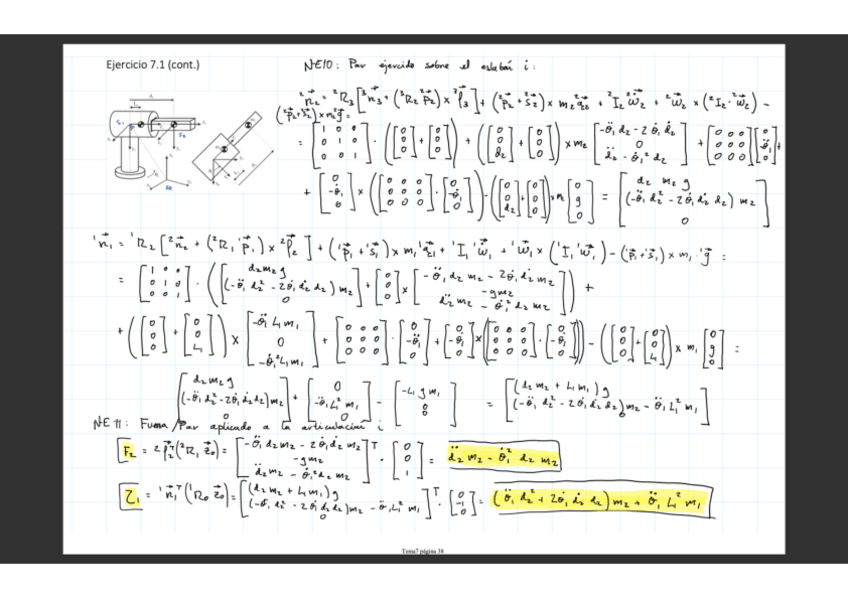 Ejercicio 7.1 (cont.)
NE10: Par ejercido sobre el eslabón i:
²n⃗₂ = ²R₃[³n⃗₃ + (³R₂ ²p⃗₂) × ³f⃗₃] + (²p⃗₂ + ²s⃗₂) × m₂ ²a⃗₂ + ²I₂ ²ω̇⃗₂ + ²ω⃗₂ × (²I₂ · ²ω⃗₂) −
(²p⃗₂ + ²s⃗₂) × m₂ ²g⃗ =
= [1 0 0; 0 1 0; 0 0 1] · ([0; 0; 0] + [0; 0; 0]) + ([0; 0; d₂] + [0; 0; 0]) × m₂ [−θ̈₁ d₂ − 2θ̇₁ ḋ₂; 0; d̈₂ − θ̇₁² d₂] + [0 0 0; 0 0 0; 0 0 0] [0; −θ̈₁; 0] +
+ [0; −θ̇₁; 0] × ([0 0 0; 0 0 0; 0 0 0] · [0; −θ̇₁; 0]) − ([0; 0; d₂] + [0; 0; 0]) × m₂ [0; g; 0] = [d₂ m₂ g; (−θ̈₁ d₂² − 2θ̇₁ d₂ ḋ₂) m₂; 0]
¹n⃗₁ = ¹R₂[²n⃗₂ + (²R₁ ¹p⃗₁) × ²f⃗₂] + (¹p⃗₁ + ¹s⃗₁) × m₁ ¹a⃗₁ + ¹I₁ ¹ω̇⃗₁ + ¹ω⃗₁ × (¹I₁ ¹ω⃗₁) − (¹p⃗₁ + ¹s⃗₁) × m₁ · ¹g⃗ =
= [1 0 0; 0 0 1; 0 1 0] · ([d₂ m₂ g; (−θ̈₁ d₂² − 2θ̇₁ d₂ ḋ₂) m₂; 0] + [0; 0; 0] × [−θ̈₁ d₂ m₂ − 2θ̇₁ ḋ₂ m₂; −g m₂; d̈₂ m₂ − θ̇₁² d₂ m₂]) +
+ ([0; 0; 0] + [0; 0; L₁]) × [−θ̈₁ L₁ m₁; 0; −θ̇₁² L₁ m₁] + [0 0 0; 0 0 0; 0 0 0] · [0; −θ̈₁; 0] + [0; −θ̇₁; 0] × ([0 0 0; 0 0 0; 0 0 0] · [0; −θ̇₁; 0]) − ([0; 0; 0] + [0; 0; L₁]) × m₁ [0; g; 0] =
[d₂ m₂ g; (−θ̈₁ d₂² − 2θ̇₁ d₂ ḋ₂) m₂; 0] + [0; −θ̈₁ L₁² m₁; 0] − [−L₁ g m₁; 0; 0] = [(d₂ m₂ + L₁ m₁) g; (−θ̈₁ d₂² − 2θ̇₁ d₂ ḋ₂) m₂ − θ̈₁ L₁² m₁; 0]
NE 11: Fuerza/Par aplicado a la articulación i
F₂ = ²f⃗₂ᵀ(²R₁ z⃗₀) = [−θ̈₁ d₂ m₂ − 2θ̇₁ ḋ₂ m₂; −g m₂; d̈₂ m₂ − θ̇₁² d₂ m₂]ᵀ · [0; 0; 1] = d̈₂ m₂ − θ̇₁² d₂ m₂
τ₁ = ¹n⃗₁ᵀ(¹R₀ z⃗₀) = [(d₂ m₂ + L₁ m₁) g; (−θ̈₁ d₂² − 2θ̇₁ d₂ ḋ₂) m₂ − θ̈₁ L₁² m₁; 0]ᵀ · [0; −1; 0] = (θ̈₁ d₂² + 2θ̇₁ ḋ₂ d₂) m₂ + θ̈₁ L₁² m₁
Tema7 página 38